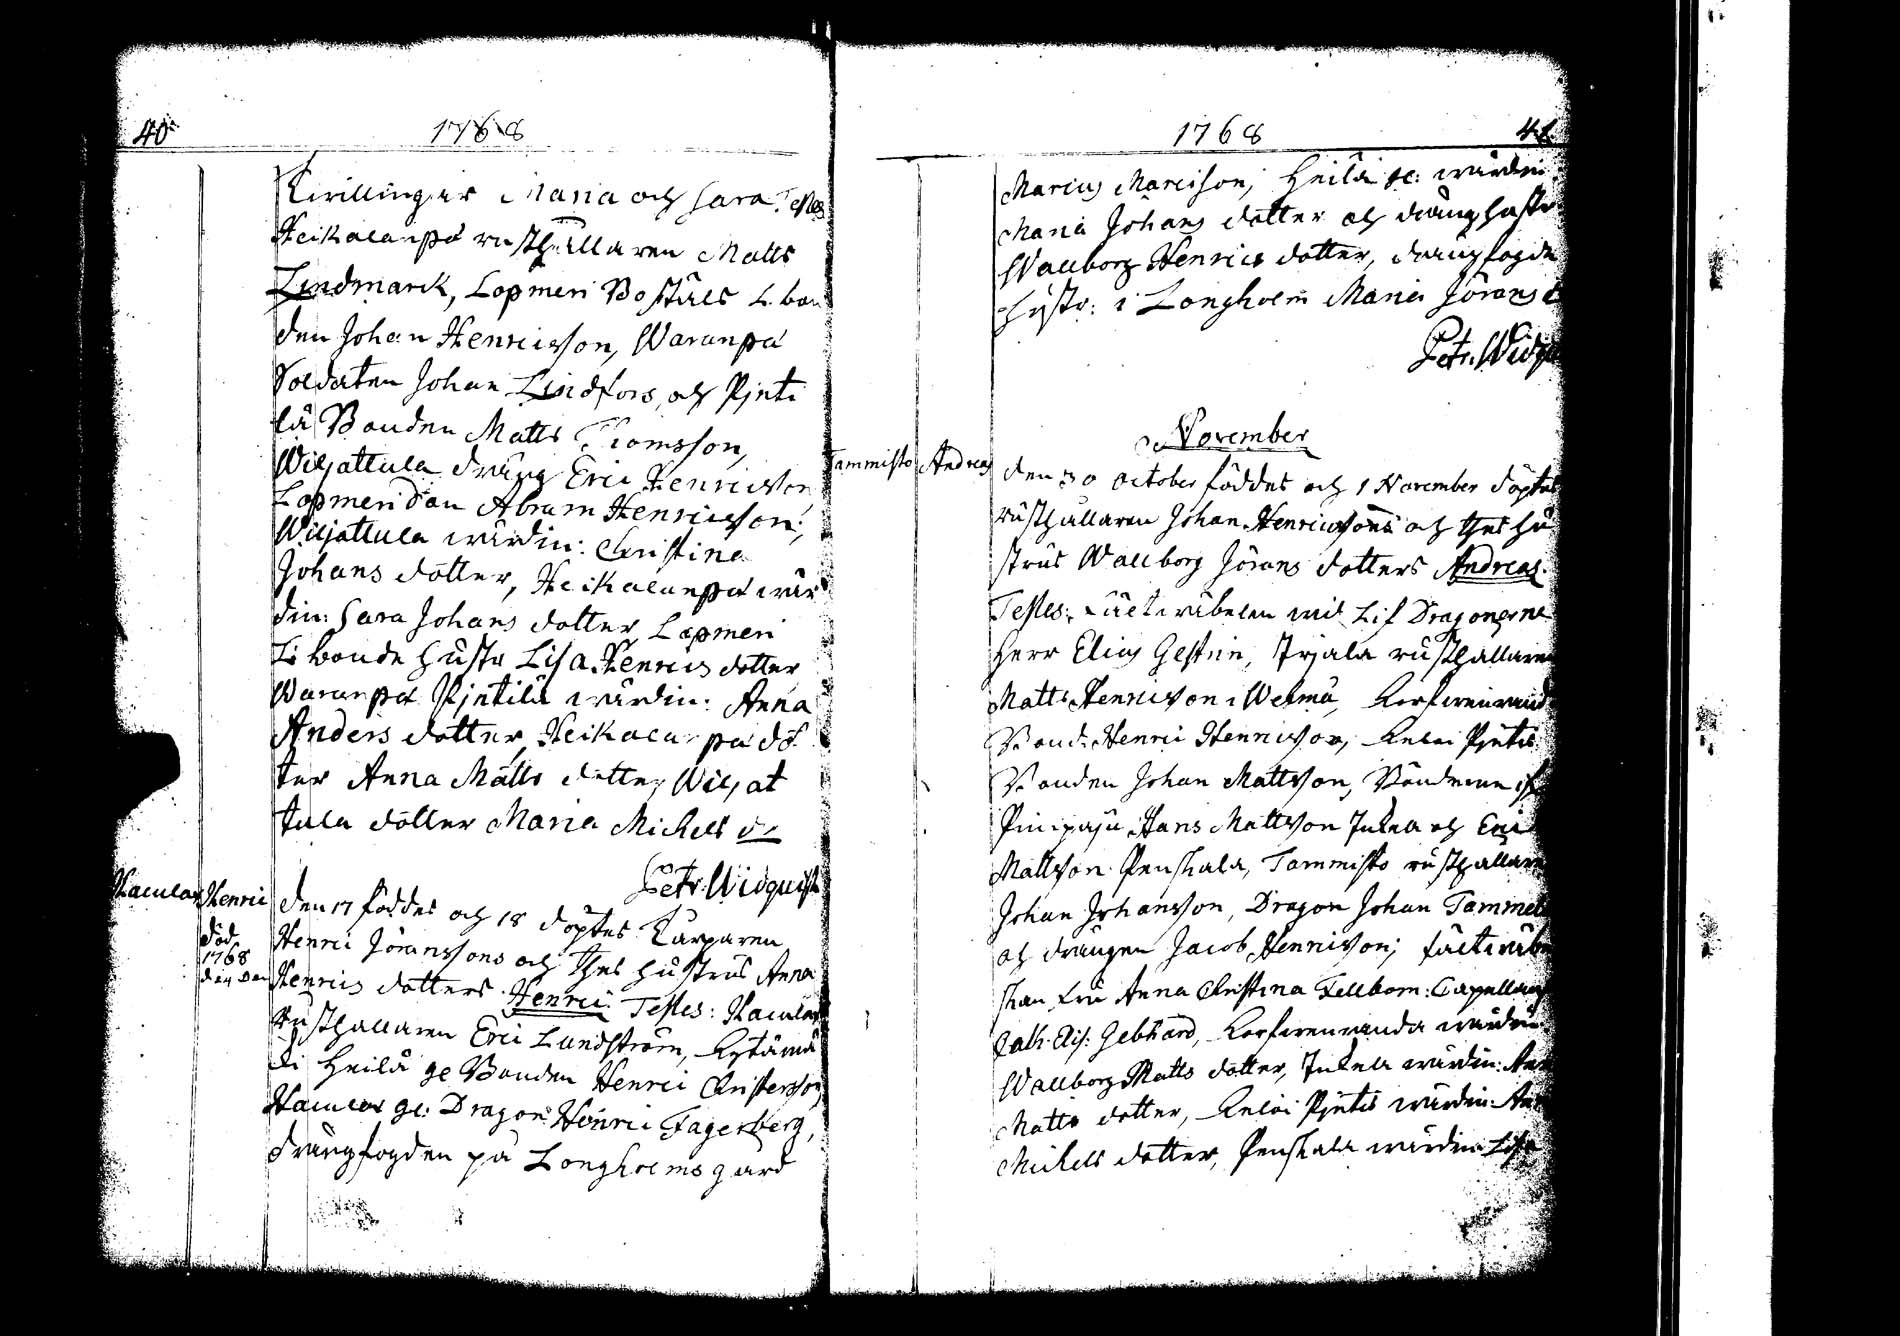 40
1768
Twillingar Maria och Sara. Testes
Heikalanpä rusthållaren Matts
Lindmarck, Lopmeri Boställs L. bon
den Johan Henricsson, Waranpä
Soldaten Johan Lindfors, och Pjnti
lä Bonden Matts Thomsson,
Wiljattula dräng Eric Henricsson
Lopmeri Son Abram Henricsson;
Wiljattula wärdin: Christina
Johans dotter, Heikalanpä wär
din: Sara Johans dotter, Lopmeri
L: bonde hustr Lisa Henrics dotter
Waranpä Pjntilä wärdin: Anna
Anders dotter, Heikalanpä dot
ter Anna Matts dotter, Wiljat
tula dotter Maria Michels dr
Petr. Widquist
Henric
död
1768
den 17 föddes och 18 döptes Torparen
Henric Jöranssons och thes hustrus Anna
Henrics dotters Henric. Testes:
rusthallaren Eric Lundström,
di Heilä ge Bonden Henric Christersson
ge: Dragon Henric Fagerberg,
drängfogden på Longholms gård
1768
41.
Marcus Marcisson, Heilä ge: wärdin:
Maria Johans dotter och dräng hustr
Wallborg Henrics dotter, drängfogde
hustr: i Longholm Maria Jörans d
Petr. Widqu
November
Tammisto Andreas
den 30 October föddes och 1 November döptes
rusthallaren Johan Henricssons och thes hu
strus Wallborg Jörans dotters Andreas.
Testes: Fältwäbelen wid Lif Dragonerne
Herr Elias Gestrin, Irjala rusthallaren
Matts Henricsson Welmä,
Bond: Henric Henricsson, Pjntis
Bonden Johan Mattsson, Bondener
Hans Mattsson Inkela och Eric
Mattsson Penshala, Tammisto rusthallaren
Johan Johansson, Dragon Johan Tammel
och drängen Jacob Henricsson; fältwäbe
skan Fru Anna Christina Fellbom: Capellans
Cath. Elis: Gebhard, wärdin
Wallborg Matts dotter, Inkela wärdin: Ann
Matts dotter, Pjntis wärdin: Ann
Michels dotter, Penshala wärdin Lisa